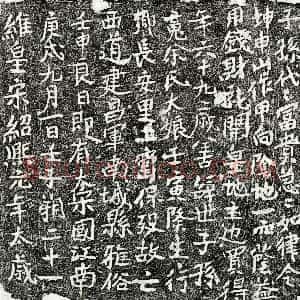 維皇宋紹熙元年太歲
庚戌九月一日壬子朔二十一
壬申良日即有大宋國江南
西道建昌軍南城縣雅俗
鄉長安里保歿故亡
余氏大娘生寅降生行
年六十九歲善終世子孫
用錢財就開皇地主邊買得
坤申山作甲向陰地一穴蔭益
子孫代代富貴急急如律令